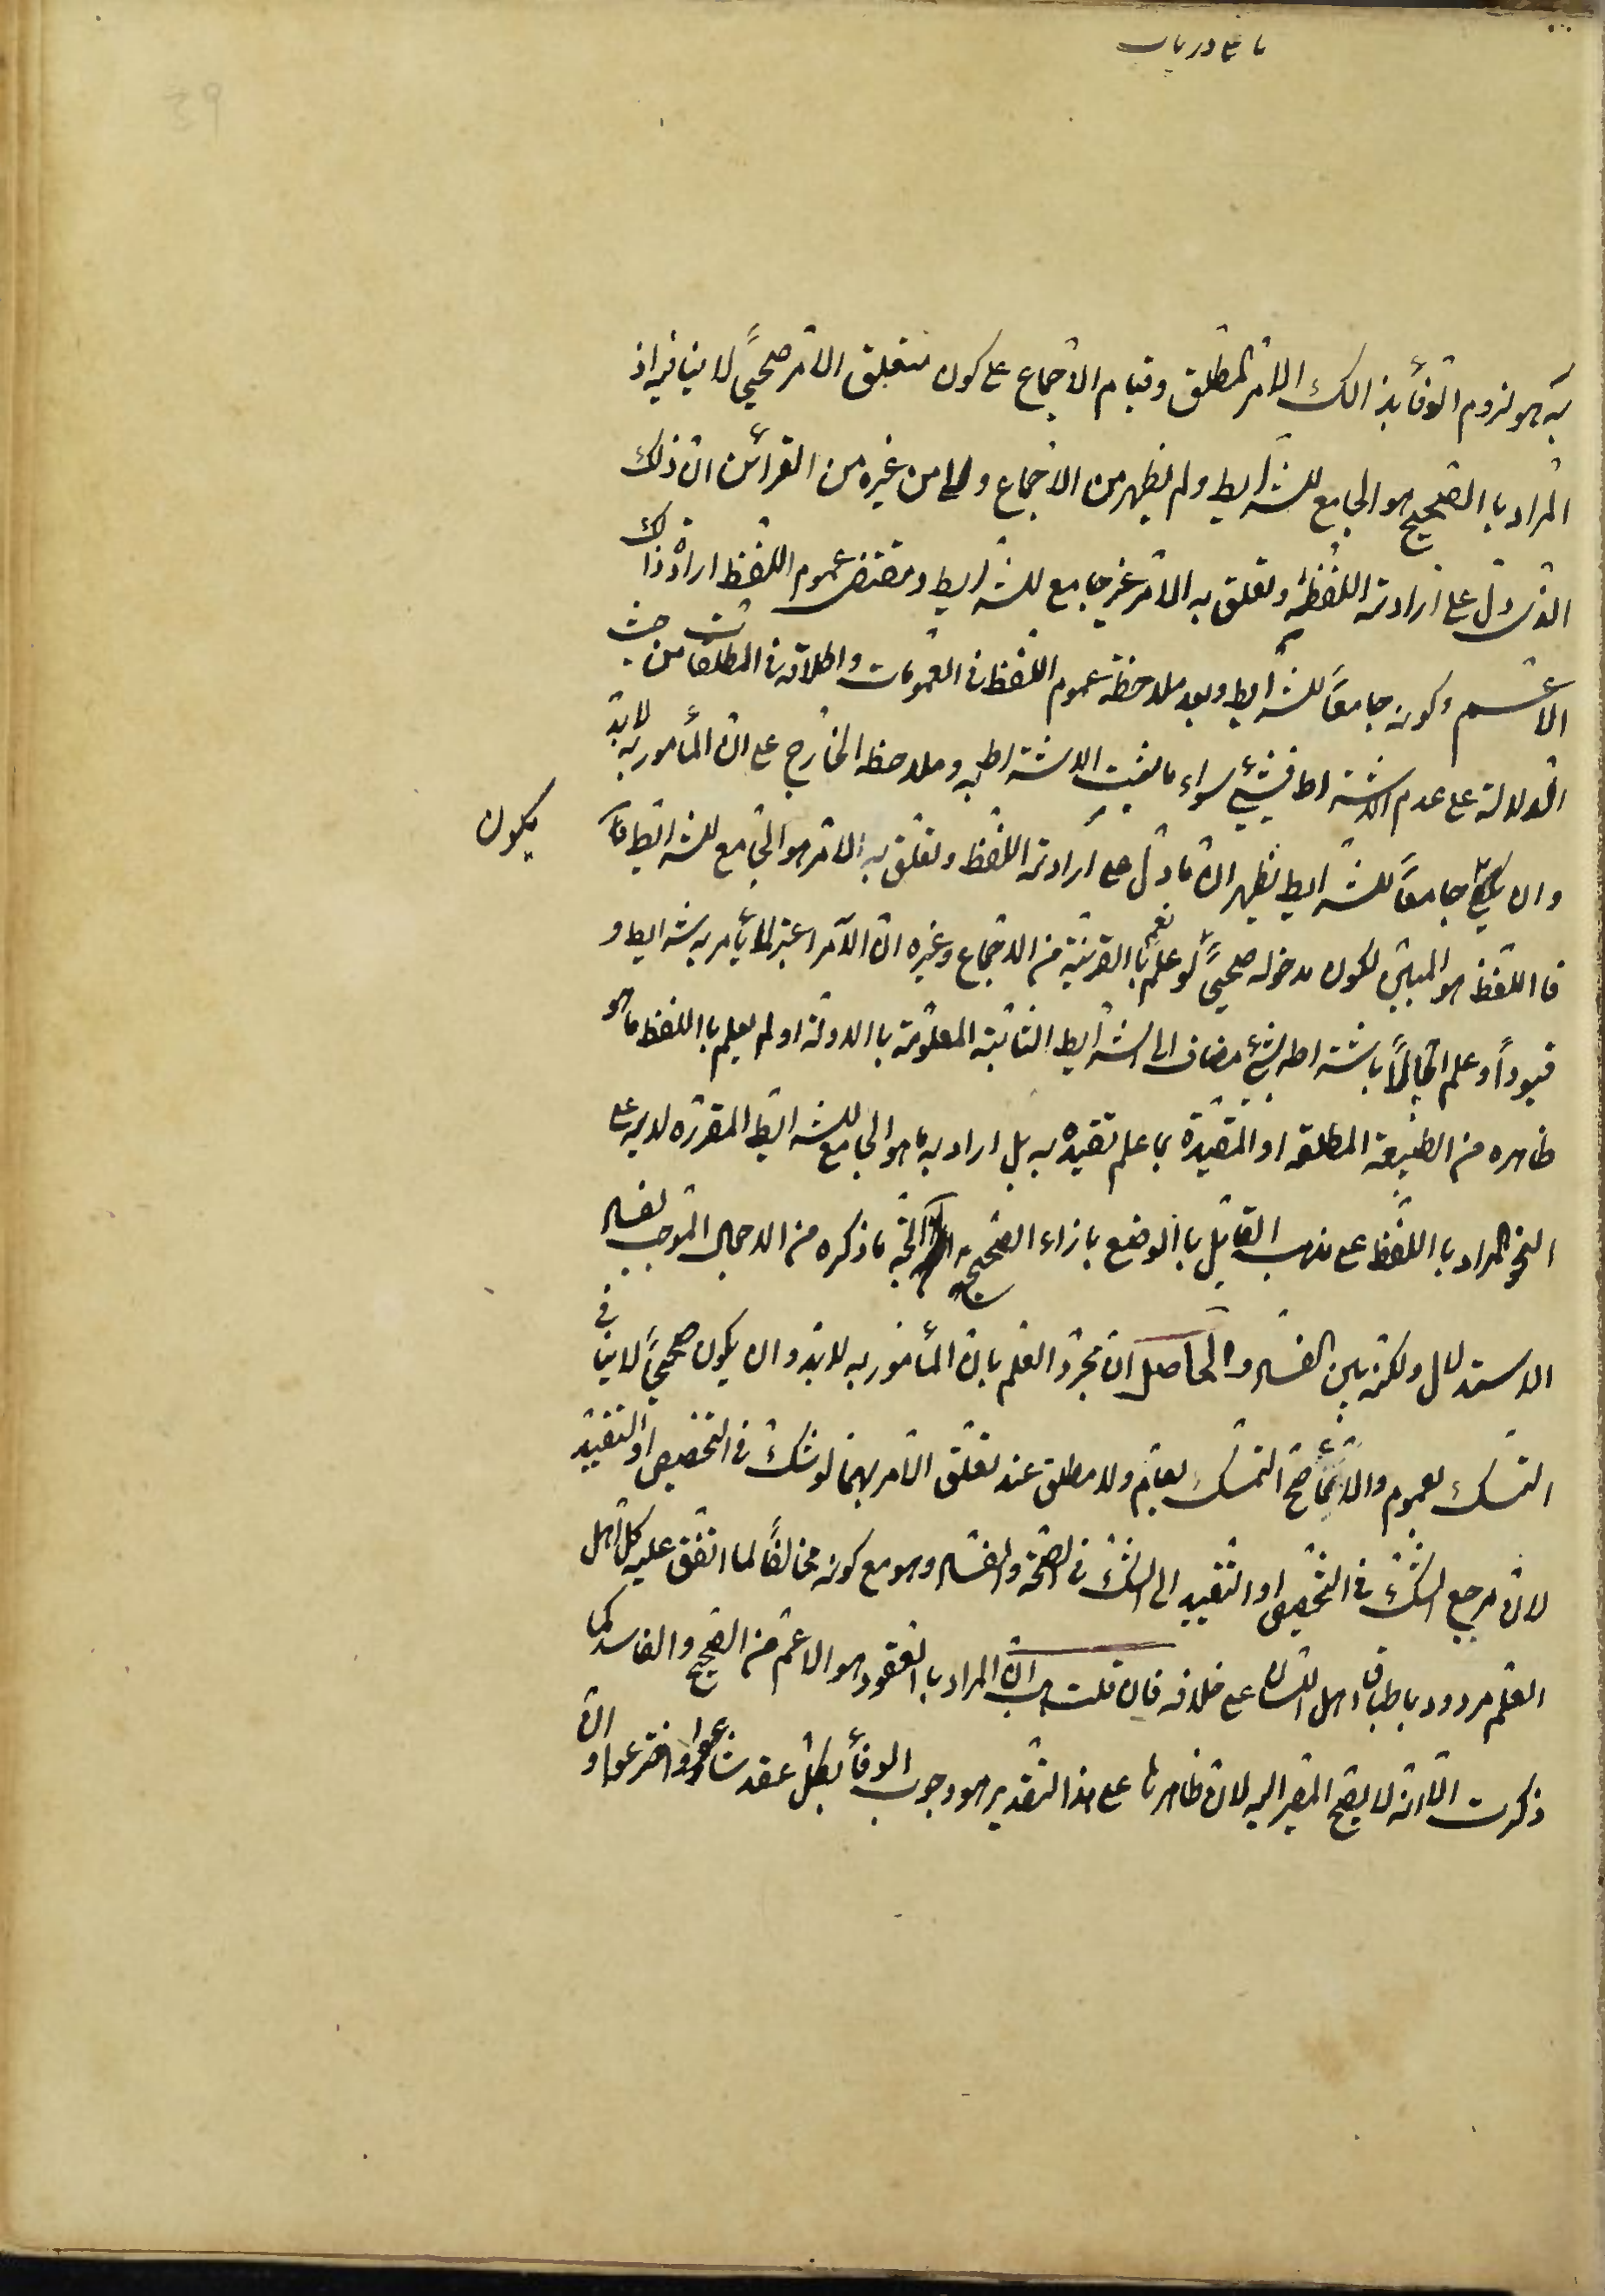 به هو لزوم الوفأ بذالك الامر المطلق وقيام الاجماع على كون متعلق الامر صحيحًا لا ينافيه اذ
المراد باالصحيح هو الجامع للشرايط ولم يظهر من الاجماع ولا من غيره من القرائن ان ذلك
الذى دل على ارادته اللفظ وتعلق به الامر غير جامع للشرايط ومقتضى عموم اللفظ ارادة ذالك
الاعم وكونه جامعًا للشرايط وبعد ملاحظة عموم اللفظ فى العمومات واطلاقه فى المطلقات من حيث
الدلالة على عدم اشتراط شيئ سواء ما ثبت الاشتراط به وملاحظة الخارج على ان المأمور به لابد
وان يكون جامعًا للشرايط يظهر ان ما دل على ارادته اللفظ وتعلق به الامر هو الجامع للشرائط
يكون
فااللفظ هو المبين لكون مدخوله صحيحًا نعم لو علم باالقرينة من الاجماع وغيره ان الآمر اعتبر لما يأمر به شرايط و
قيودًا وعلم اجمالًا باشتراطه بشيئ مضاف الى الشرايط الثابتة المعلومة باالادلة او لم يعلم باللفظ ما هو
ظاهره من الطبيعة المطلقه او المقيدة بما علم تقيده به بل اراد به ما هو الجامع للشرائط المقررة لديه على
النحو المراد باللفظ على مذهب القائل باالوضع بازاء الصحيح اتجه ما ذكره من الاجمال الموجب لفساد
الاستدلال ولكنه بين الفساد والحاصل ان مجرد العلم بان المأمور به لابد وان يكون صحيحًا لا ينافى
التمسك بعموم والا لما صح التمسك بعام ولا مطلق عند تعلق الامر بهما لو شك فى التخصيص او التقييد
لان مرجع الشك فى التخصيص او التقييد الى الشك فى الصحة والفساد وهو مع كونه مخالفًا لما اتفق عليه كل اهل
العلم مردود باطباق اهل اللسان على خلافه فان قلت هب ان المراد باالعقود هو الاعم من الصحيح والفاسد كما
ذكرت الا انه لا يصح المصير اليه لان ظاهرها على هذا التقدير هو وجوب الوفأ بكل عقد شاؤا واخترعوا وان